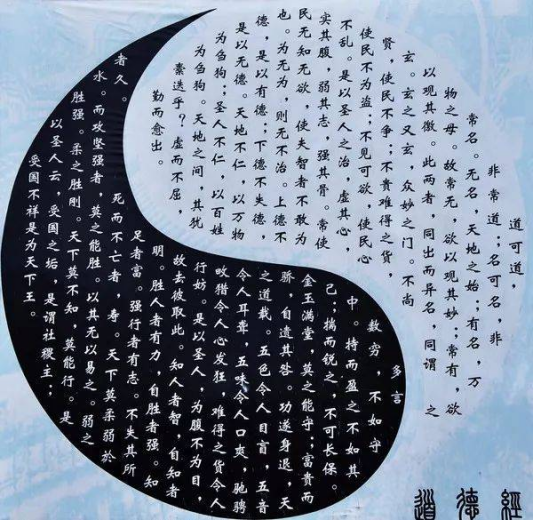 道可道，
非常道；名可名，非
常名。无名，天地之始；有名，万
物之母。故常无，欲以观其妙；常有，欲
以观其徼。此两者，同出而异名，同谓之
玄。玄之又玄，众妙之门。不尚
贤，使民不争；不贵难得之货，
使民不为盗；不见可欲，使民心
不乱。是以圣人之治，虚其心，
实其腹，弱其志，强其骨。常使
民无知无欲，使夫智者不敢为
也。为无为，则无不治。上德不
德，是以有德；下德不失德，
是以无德。天地不仁，以万物
为刍狗；圣人不仁，以百姓
为刍狗。天地之间，其犹
乎？虚而不屈，
勤而愈出。
多言
数穷，不如守
中。持而盈之不如其
己；揣而锐之，不可长保。
金玉满堂，莫之能守；富贵而
骄，自遗其咎。功遂身退，天
之道哉。五色令人目盲，五音
令人耳聋，五味令人口爽，驰骋
畋猎令人心发狂，难得之货令人
行妨。是以圣人，为腹不为目，
故去彼取此。知人者智，自知者
明。胜人者有力，自胜者强。知
足者富。强行者有志。不失其所
者久。死而不亡者，寿。天下莫柔弱於
水。而攻坚强者，莫之能胜。以其无以易之。弱之
胜强。柔之胜刚。天下莫不知，莫能行。是
以圣人云，受国之垢，是谓社稷主；
受国不祥是为天下王。
道德經